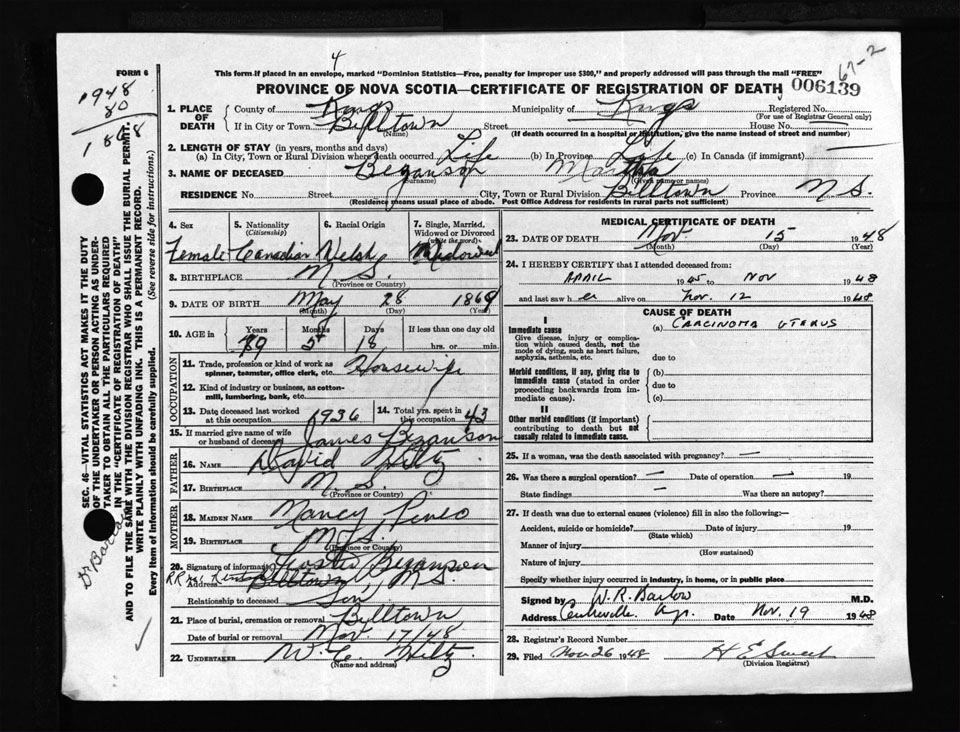 4
67-2
FORM 6
This form if placed in an envelope, marked "Dominion Statistics—Free, penalty for improper use $300," and properly addressed will pass through the mail "FREE"
PROVINCE OF NOVA SCOTIA—CERTIFICATE OF REGISTRATION OF DEATH 006139
(For use of Registrar General only)
1948
80
1868
1. PLACE OF DEATH County of Kings Municipality of Kings
If in City or Town Billtown Street House No.
(Name) (If death occurred in a hospital or institution, give the name instead of street and number)
2. LENGTH OF STAY (in years, months and days)
(a) In City, Town or Rural Division where death occurred Life (b) In Province Life (c) In Canada (if immigrant)
3. NAME OF DECEASED Beganson Martha
(Surname) (Given name or names)
RESIDENCE No. Street City, Town or Rural Division Billtown Province N.S.
(Residence means usual place of abode. Post Office Address for residents in rural parts not sufficient)
4. Sex 5. Nationality (Citizenship) 6. Racial Origin 7. Single, Married, Widowed or Divorced (write the word)
Female Canadian Welsh Widowed
8. BIRTHPLACE N.S.
(Province or Country)
9. DATE OF BIRTH May 28 1869
(Month) (Day) (Year)
10. AGE in Years Months Days If less than one day old
79 5 18 hrs. or min.
OCCUPATION
11. Trade, profession or kind of work as spinner, teamster, office clerk, etc. Housewife
12. Kind of industry or business, as cotton-mill, lumbering, bank, etc.
13. Date deceased last worked at this occupation 1936 14. Total yrs. spent in this occupation 43
15. If married give name of wife or husband of deceased James Beganson
FATHER
16. NAME David Hiltz
17. BIRTHPLACE N.S.
(Province or Country)
MOTHER
18. MAIDEN NAME Nancy Pineo
19. BIRTHPLACE N.S.
(Province or Country)
20. Signature of informant Foster Beganson
Address Billtown, N.S.
Relationship to deceased Son
21. Place of burial, cremation or removal Billtown
Date of burial or removal Nov. 17/48
22. UNDERTAKER W. C. Hiltz
(Name and address)
MEDICAL CERTIFICATE OF DEATH
23. DATE OF DEATH Nov. 15 1948
(Month) (Day) (Year)
24. I HEREBY CERTIFY that I attended deceased from:
APRIL 1945 to NOV 1948
and last saw her alive on Nov. 12 1948
CAUSE OF DEATH
I
Immediate cause (a) CARCINOMA UTERUS
Give disease, injury or complication which caused death, not the mode of dying, such as heart failure, asphyxia, asthenia, etc. due to
Morbid conditions, if any, giving rise to immediate cause (stated in order proceeding backwards from immediate cause). (b)
due to
(c)
II
Other morbid conditions (if important) contributing to death but not causally related to immediate cause.
25. If a woman, was the death associated with pregnancy? —
26. Was there a surgical operation? — Date of operation — 19
State findings — Was there an autopsy?
27. If death was due to external causes (violence) fill in also the following:—
Accident, suicide or homicide? Date of injury 19
(State which)
Manner of injury
(How sustained)
Nature of injury
Specify whether injury occurred in industry, in home, or in public place
Signed by W. R. Barlow M.D.
Address Centreville Date Nov. 19 1948
28. Registrar's Record Number
29. Filed Nov 26 1948 H E Sweet
(Division Registrar)
SEC. 46—VITAL STATISTICS ACT MAKES IT THE DUTY
OF THE UNDERTAKER OR PERSON ACTING AS UNDERTAKER TO OBTAIN ALL THE PARTICULARS REQUIRED
IN THE "CERTIFICATE OF REGISTRATION OF DEATH"
AND TO FILE THE SAME WITH THE DIVISION REGISTRAR WHO SHALL ISSUE THE BURIAL PERMIT.
WRITE PLAINLY WITH UNFADING INK. THIS IS A PERMANENT RECORD.
Every item of information should be carefully supplied. (See reverse side for instructions.)